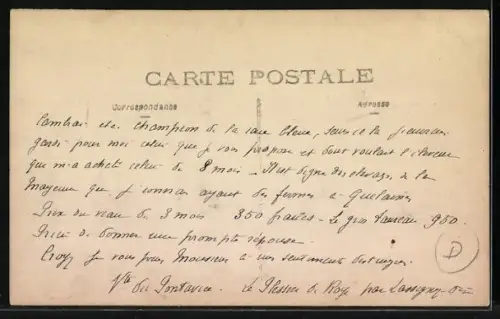 CARTE POSTALE
Correspondance
Adresse
champion de la race bleue,
pour moi celui que je vous propose et dont voulait l'éleveur
qui m'a acheté celui de 8 mois - Il est digne des élevages de la
Mayenne que je connais ayant des fermes à Quelaines
Prix du veau de 3 mois 350 francs - Le gros taureau 950.
Prière de donner une prompte réponse
Croyez je vous prie Monsieur à mes sentiments distingués
Vte du Pontavice Le Plessier de Roye par Lassigny Oise
D